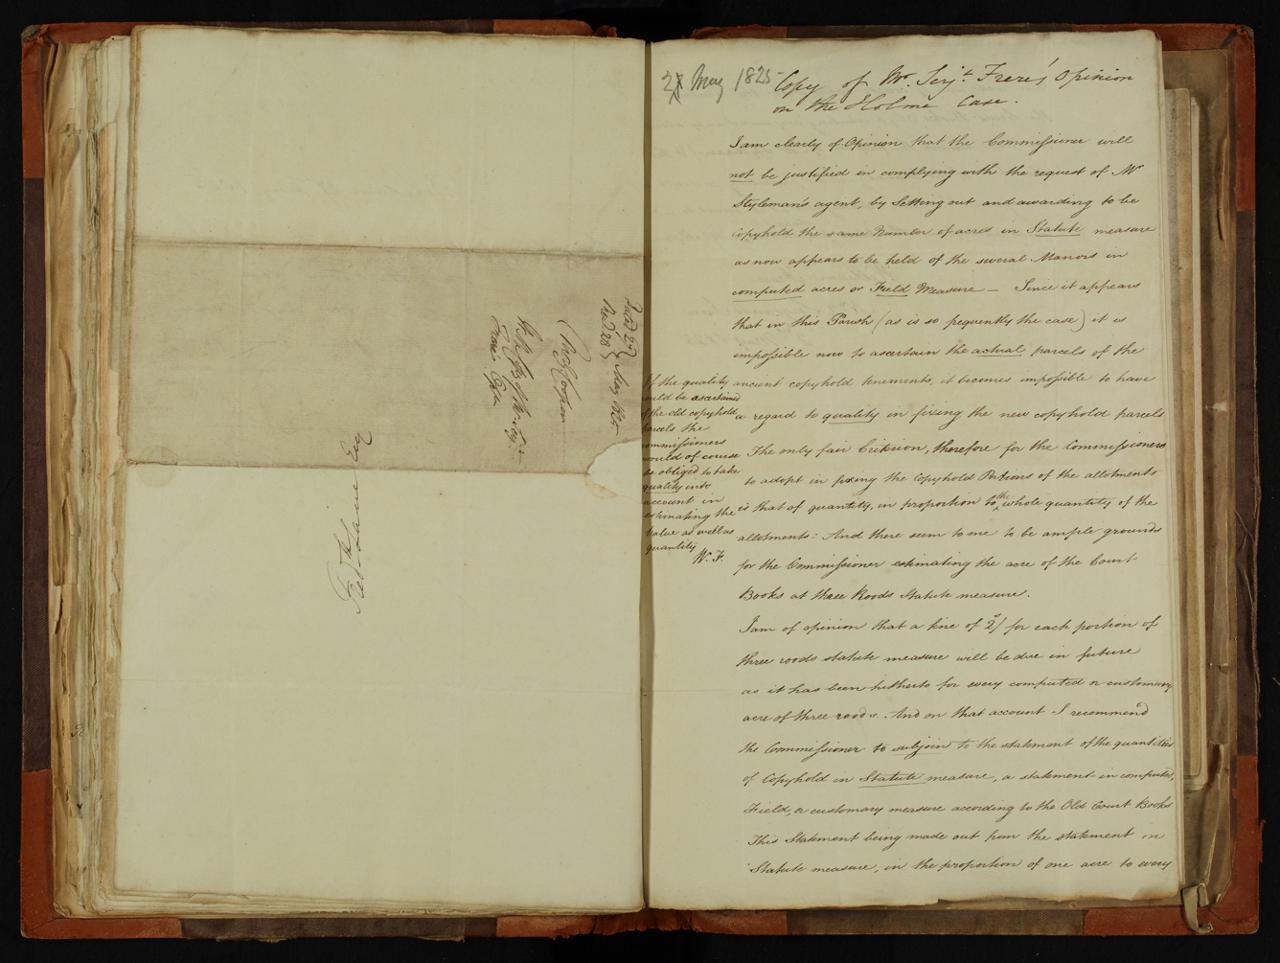 Fred Lane Esq
Dated 27 } May 1825
Rec'd 28
2 May 1825
Copy of Mr. Serjt. Frere's Opinion
on the Holme Case.
I am clearly of Opinion that the Commissioner will
not be justified in complying with the request of Mr
Styleman's agent, by Setting out and awarding to be
Copyhold the same Number of acres in Statute measure
as now appears to be held of the several Manors in
computed acres or Field Measure — Since it appears
that in this Parish (as is so frequently the case) it is
impossible now to ascertain the actual parcels of the
ancient copyhold tenements, it becomes impossible to have
a regard to quality in fixing the new copyhold parcels
The only fair Criterion, therefore for the Commissioners
to adopt in fixing the Copyhold Portions of the allotments
is that of quantity, in proportion to the whole quantity of the
allotments: And there seem to me to be ample grounds
for the Commissioner estimating the acre of the Court
Books at three Roods Statute measure.
I am of opinion that a fine of 2/ for each portion of
three roods statute measure will be due in future
as it has been hitherto for every computed or customary
acre of three roods. And on that account I recommend
the Commissioner to subjoin to the statement of the quantities
of Copyhold in Statute measure, a statement in computed,
Field, or customary measure according to the Old Court Books
This Statement being made out from the statement in
Statute measure, in the proportion of one acre to every
If the quality
could be ascertained
of the old copyhold
parcels the
commissioners
would of course
be obliged to take
quality into
account in
estimating the
value as well as
quantity
W. F.